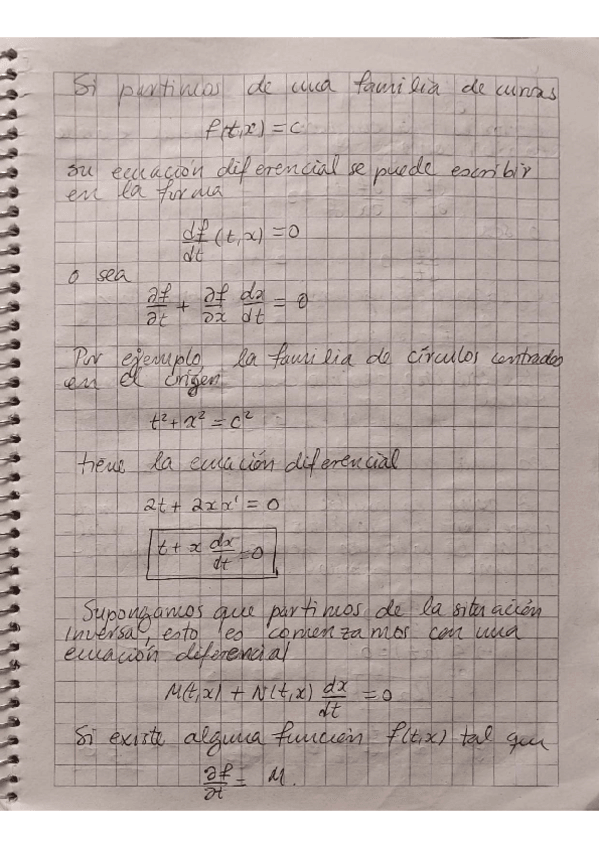 Si partimos de una familia de curvas
f(t,x) = c
su ecuación diferencial se puede escribir
en la forma
df/dt (t,x) = 0
o sea
∂f/∂t + ∂f/∂x dx/dt = 0
Por ejemplo la familia de círculos centrados
en el origen
t² + x² = c²
tiene la ecuación diferencial
2t + 2xx' = 0
t + x dx/dt = 0
Supongamos que partimos de la situación
inversal, esto es comenzamos con una
ecuación diferencial
M(t,x) + N(t,x) dx/dt = 0
Si existe alguna función f(t,x) tal que
∂f/∂t = M.